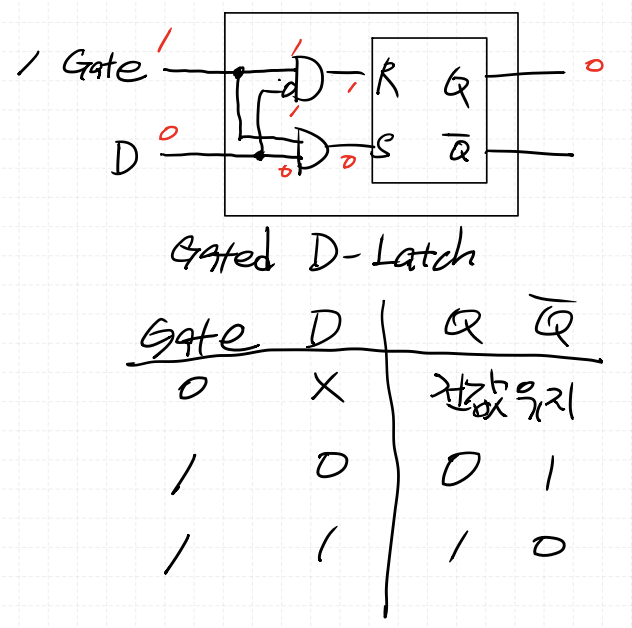 1
1 Gate 1 R Q 0
1
1
D 0 0 0 S Q̅
Gated D-Latch
Gate D Q Q̅
0 X 저장값 유지
1 0 0 1
1 1 1 0